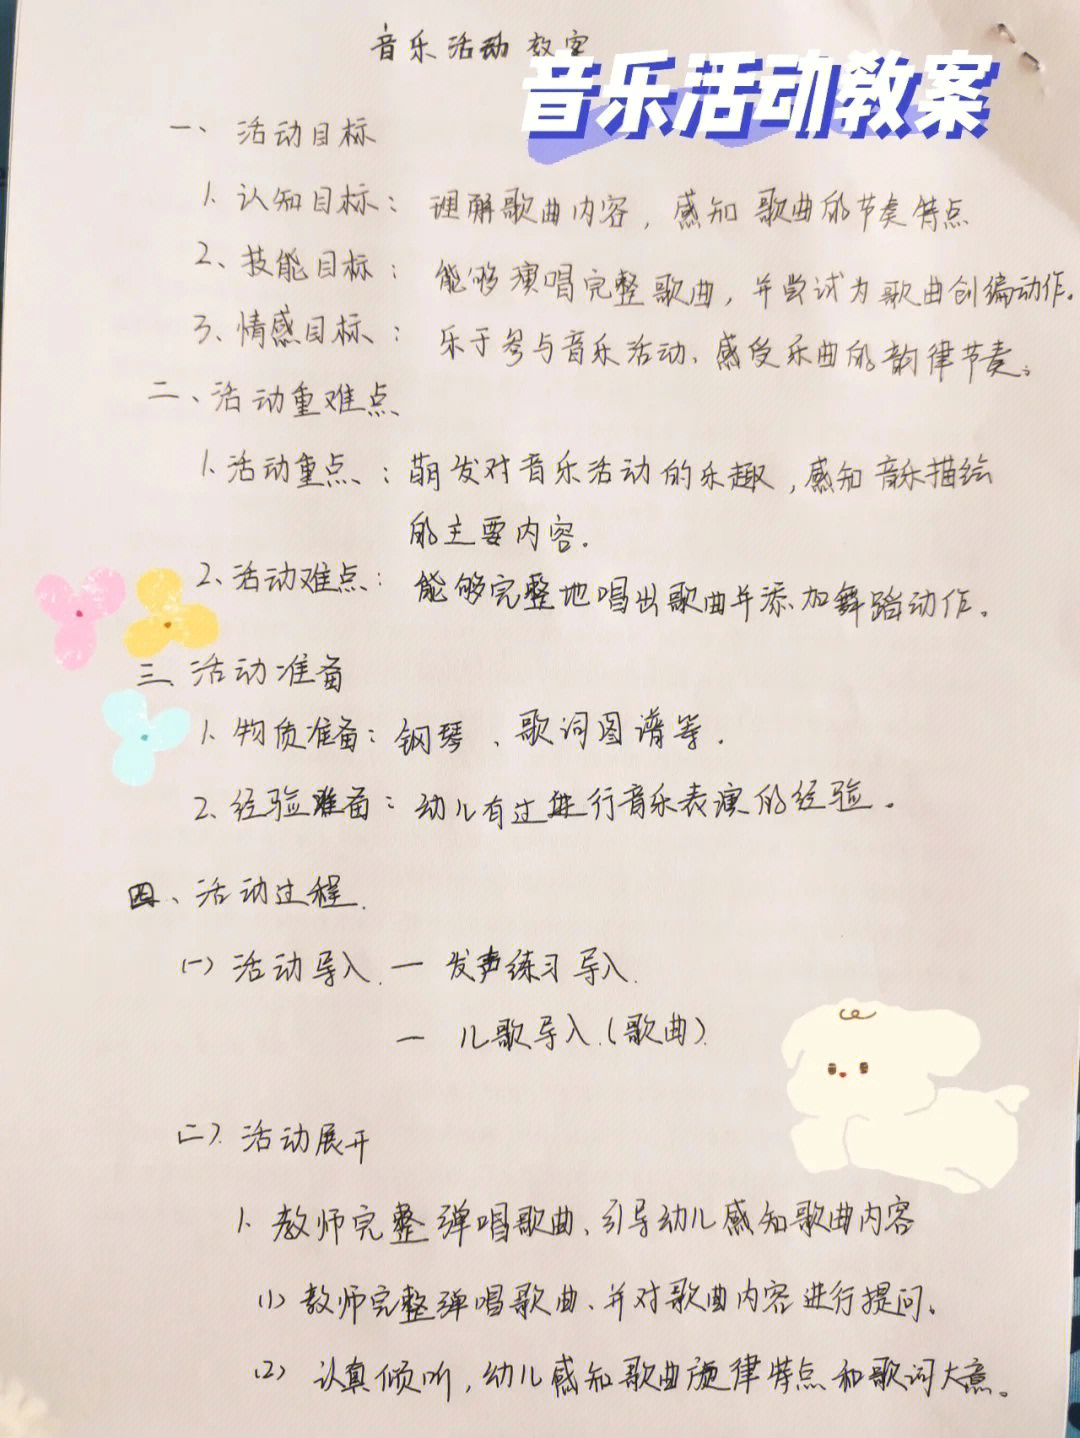 音乐活动教案
音乐活动教案
一、活动目标
1. 认知目标：理解歌曲内容，感知歌曲的节奏特点
2、技能目标：能够演唱完整歌曲，并尝试为歌曲创编动作。
3、情感目标：乐于参与音乐活动、感受乐曲的韵律节奏。
二、活动重难点
1. 活动重点：萌发对音乐活动的乐趣，感知音乐描绘
的主要内容.
2. 活动难点：能够完整地唱出歌曲并添加舞蹈动作。
三、活动准备
1. 物质准备：钢琴、歌词图谱等.
2. 经验准备：幼儿有过进行音乐表演的经验.
四、活动过程.
(一) 活动导入. 一 发声练习导入.
一 儿歌导入.(歌曲).
(二). 活动展开
1. 教师完整弹唱歌曲、引导幼儿感知歌曲内容
(1) 教师完整弹唱歌曲、并对歌曲内容进行提问。
(2) 认真倾听，幼儿感知歌曲旋律特点和歌词大意。